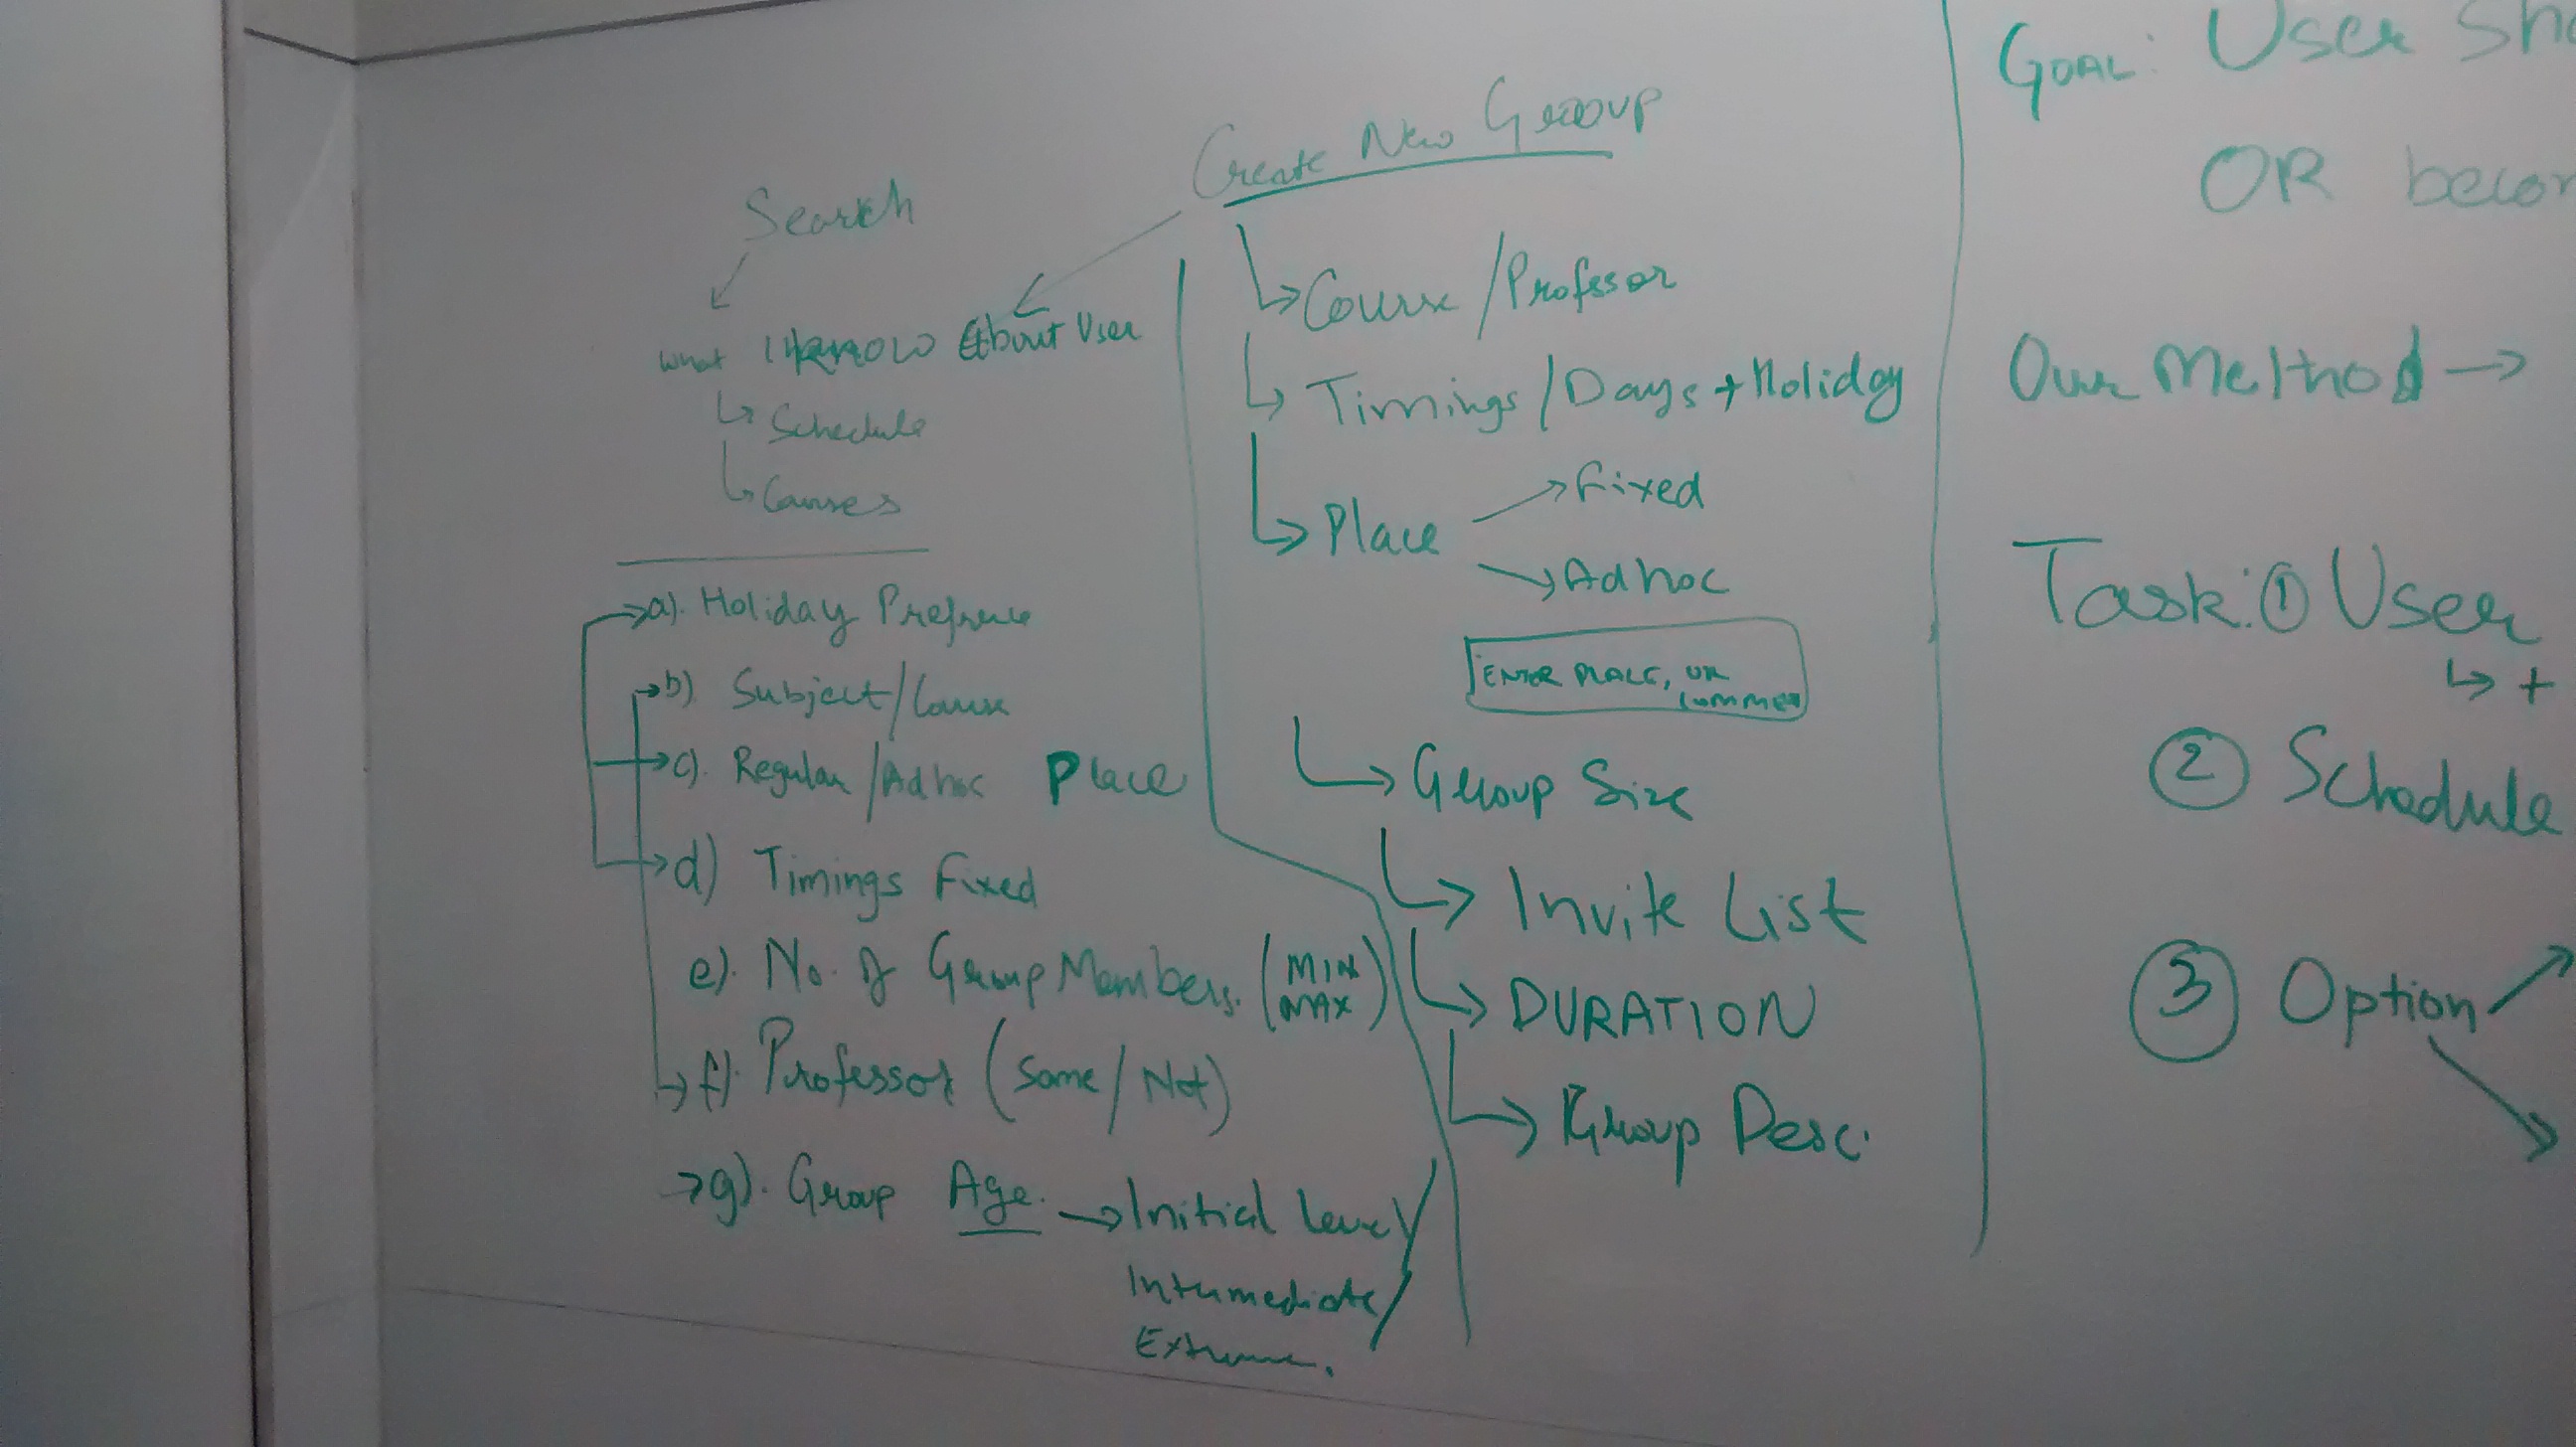 Search
What I KNOW About User
Schedule
Courses
a). Holiday Prefrence
b) Subject/Course
c). Regular/Adhoc Place
d) Timings Fixed
e). No. of Group Members. (MIN MAX)
f). Professor (Same/Not)
g). Group Age. → Initial Level/
Intermediate/
Extreme.
Create New Group
Course/Professor
Timings/Days + Holiday
Place
Fixed
Adhoc
ENTER PLACE, OR
COMMEN
Group Size
Invite List
DURATION
Group Desc.
GOAL: User Sho
OR becom
Our Method →
Task: ① User
↳ +
② Schedule
③ Option